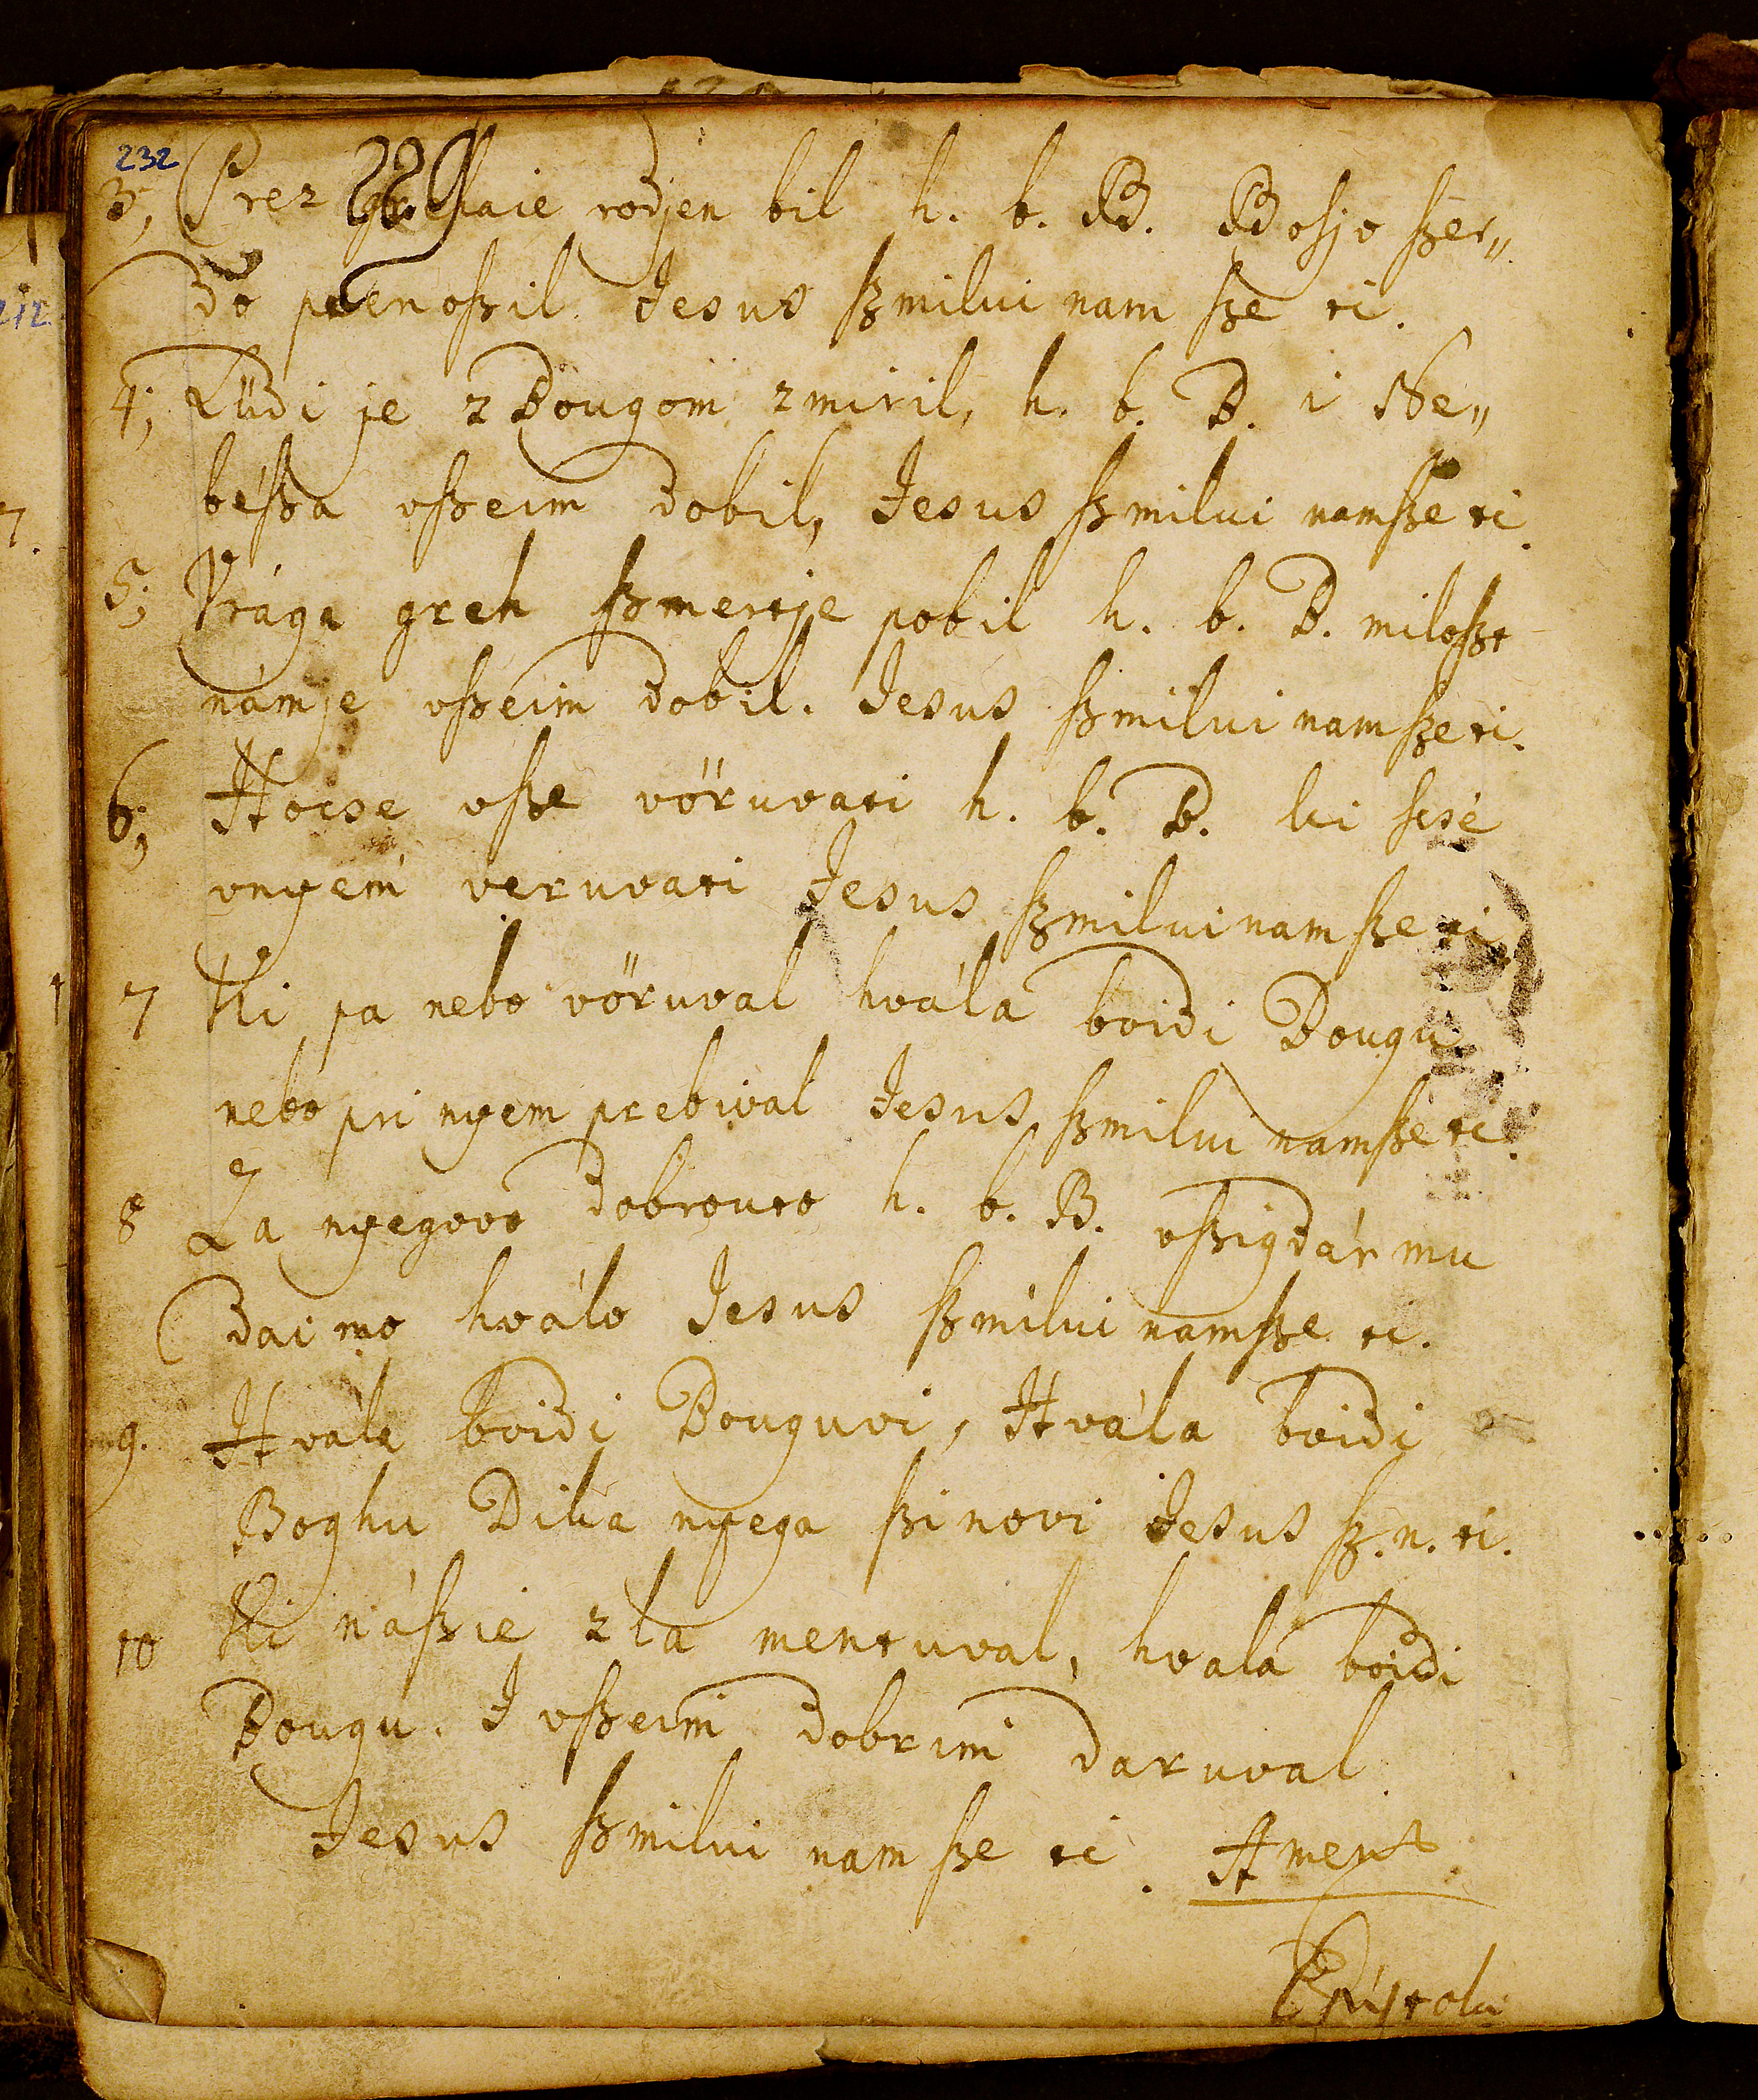 232
3; Prez grehaie rodjen bil h. b. B. Bosjo szer„
do prenoszil. Jesus szmilui nam sze ti.
4; Lüdi je z Bougom zmiril, h. b. B. i Ne„
bészá vszeim dobil, Jesus szmilui namsze ti.
5; Vrága greh szmertje pobil h. b. B. miloszt
námje vszeim dobil. Jesus szmilui nam sze ti.
6; Hocse vsze vöruvati h. b. B. ki scsé
vnyem veruvati Jesus szmilui nam sze ti
7 Ki pa nebo vöruval hvála boidi Bougu
nebo pri nyem prebival Jesus szmilui namsze ti.
8 Za nyegovo dobrouto h. b. B. vszigdár mu
dai mo hválo Jesus szmilui namsze ti.
9. Hvála boidi Bouguvi, Hvála boidi
Boghu Dika nyega szinovi Jesus sz. n. ti.
10 Ki nászie zla mentuval, hvala boidi
Bougu. I vszeim dobrim daruval
Jesus szmilui nam sze ti. Ament